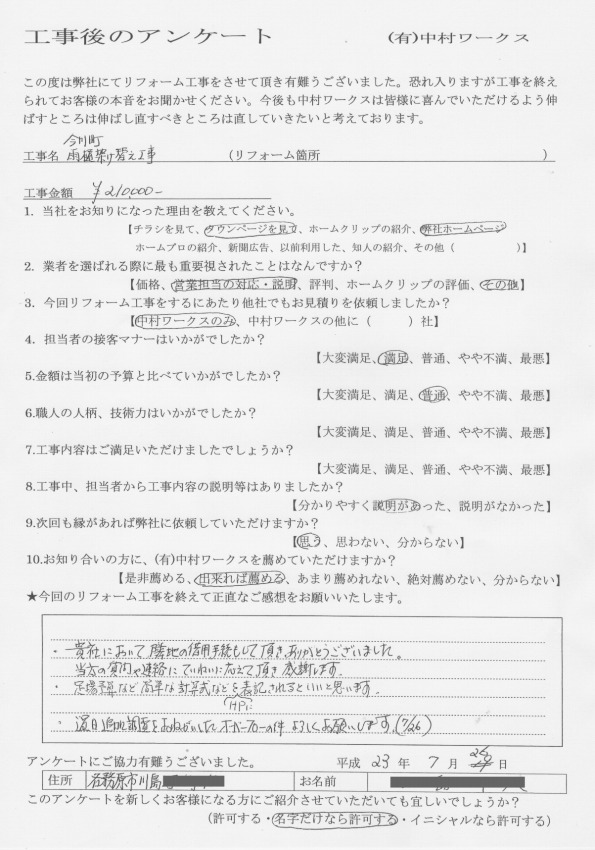 工事後のアンケート　(有)中村ワークス
この度は弊社にてリフォーム工事をさせて頂き有難うございました。恐れ入りますが工事を終え
られてお客様の本音をお聞かせください。今後も中村ワークスは皆様に喜んでいただけるよう伸
ばすところは伸ばし直すべきところは直していきたいと考えております。
今川町
工事名 雨樋架け替え工事　(リフォーム箇所　)
工事金額 ￥210,000-
1. 当社をお知りになった理由を教えてください。
【チラシを見て、タウンページを見て、ホームクリップの紹介、弊社ホームページ
ホームプロの紹介、新聞広告、以前利用した、知人の紹介、その他（　）】
2. 業者を選ばれる際に最も重要視されたことはなんですか？
【価格、営業担当の対応・説明、評判、ホームクリップの評価、その他】
3. 今回リフォーム工事をするにあたり他社でもお見積りを依頼しましたか？
【中村ワークスのみ、中村ワークスの他に（　）社】
4. 担当者の接客マナーはいかがでしたか？
【大変満足、満足、普通、やや不満、最悪】
5.金額は当初の予算と比べていかがでしたか？
【大変満足、満足、普通、やや不満、最悪】
6.職人の人柄、技術力はいかがでしたか？
【大変満足、満足、普通、やや不満、最悪】
7.工事内容はご満足いただけましたでしょうか？
【大変満足、満足、普通、やや不満、最悪】
8.工事中、担当者から工事内容の説明等はありましたか？
【分かりやすく説明があった、説明がなかった】
9.次回も縁があれば弊社に依頼していただけますか？
【思う、思わない、分からない】
10.お知り合いの方に、(有)中村ワークスを薦めていただけますか？
【是非薦める、出来れば薦める、あまり薦めれない、絶対薦めない、分からない】
★今回のリフォーム工事を終えて正直なご感想をお願いいたします。
・貴社において隣地の借用手続もして頂きありがとうございました。
当方の質問や連絡にていねいに応えて頂き感謝します。
・足場 など簡単な計算式などを表記されるといいと思います。
HPに
・過日追加調査をおねがいしたオーバーフローの件よろしくお願いします。(7/26)
アンケートにご協力有難うございました。　平成 23 年 7 月 26 日
住所 各務原市川島　お名前
このアンケートを新しくお客様になる方にご紹介させていただいても宜しいでしょうか？
(許可する・名字だけなら許可する・イニシャルなら許可する)